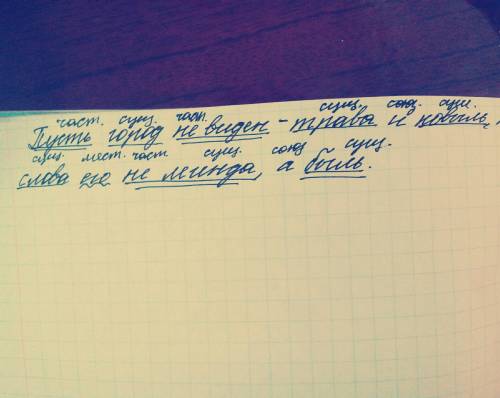 част. сущ. част. сущ. союз. сущ.
Пусть город не виден - трава и ковыль,
сущ. мест. част сущ. союз сущ.
слова его не легенда, а быль.